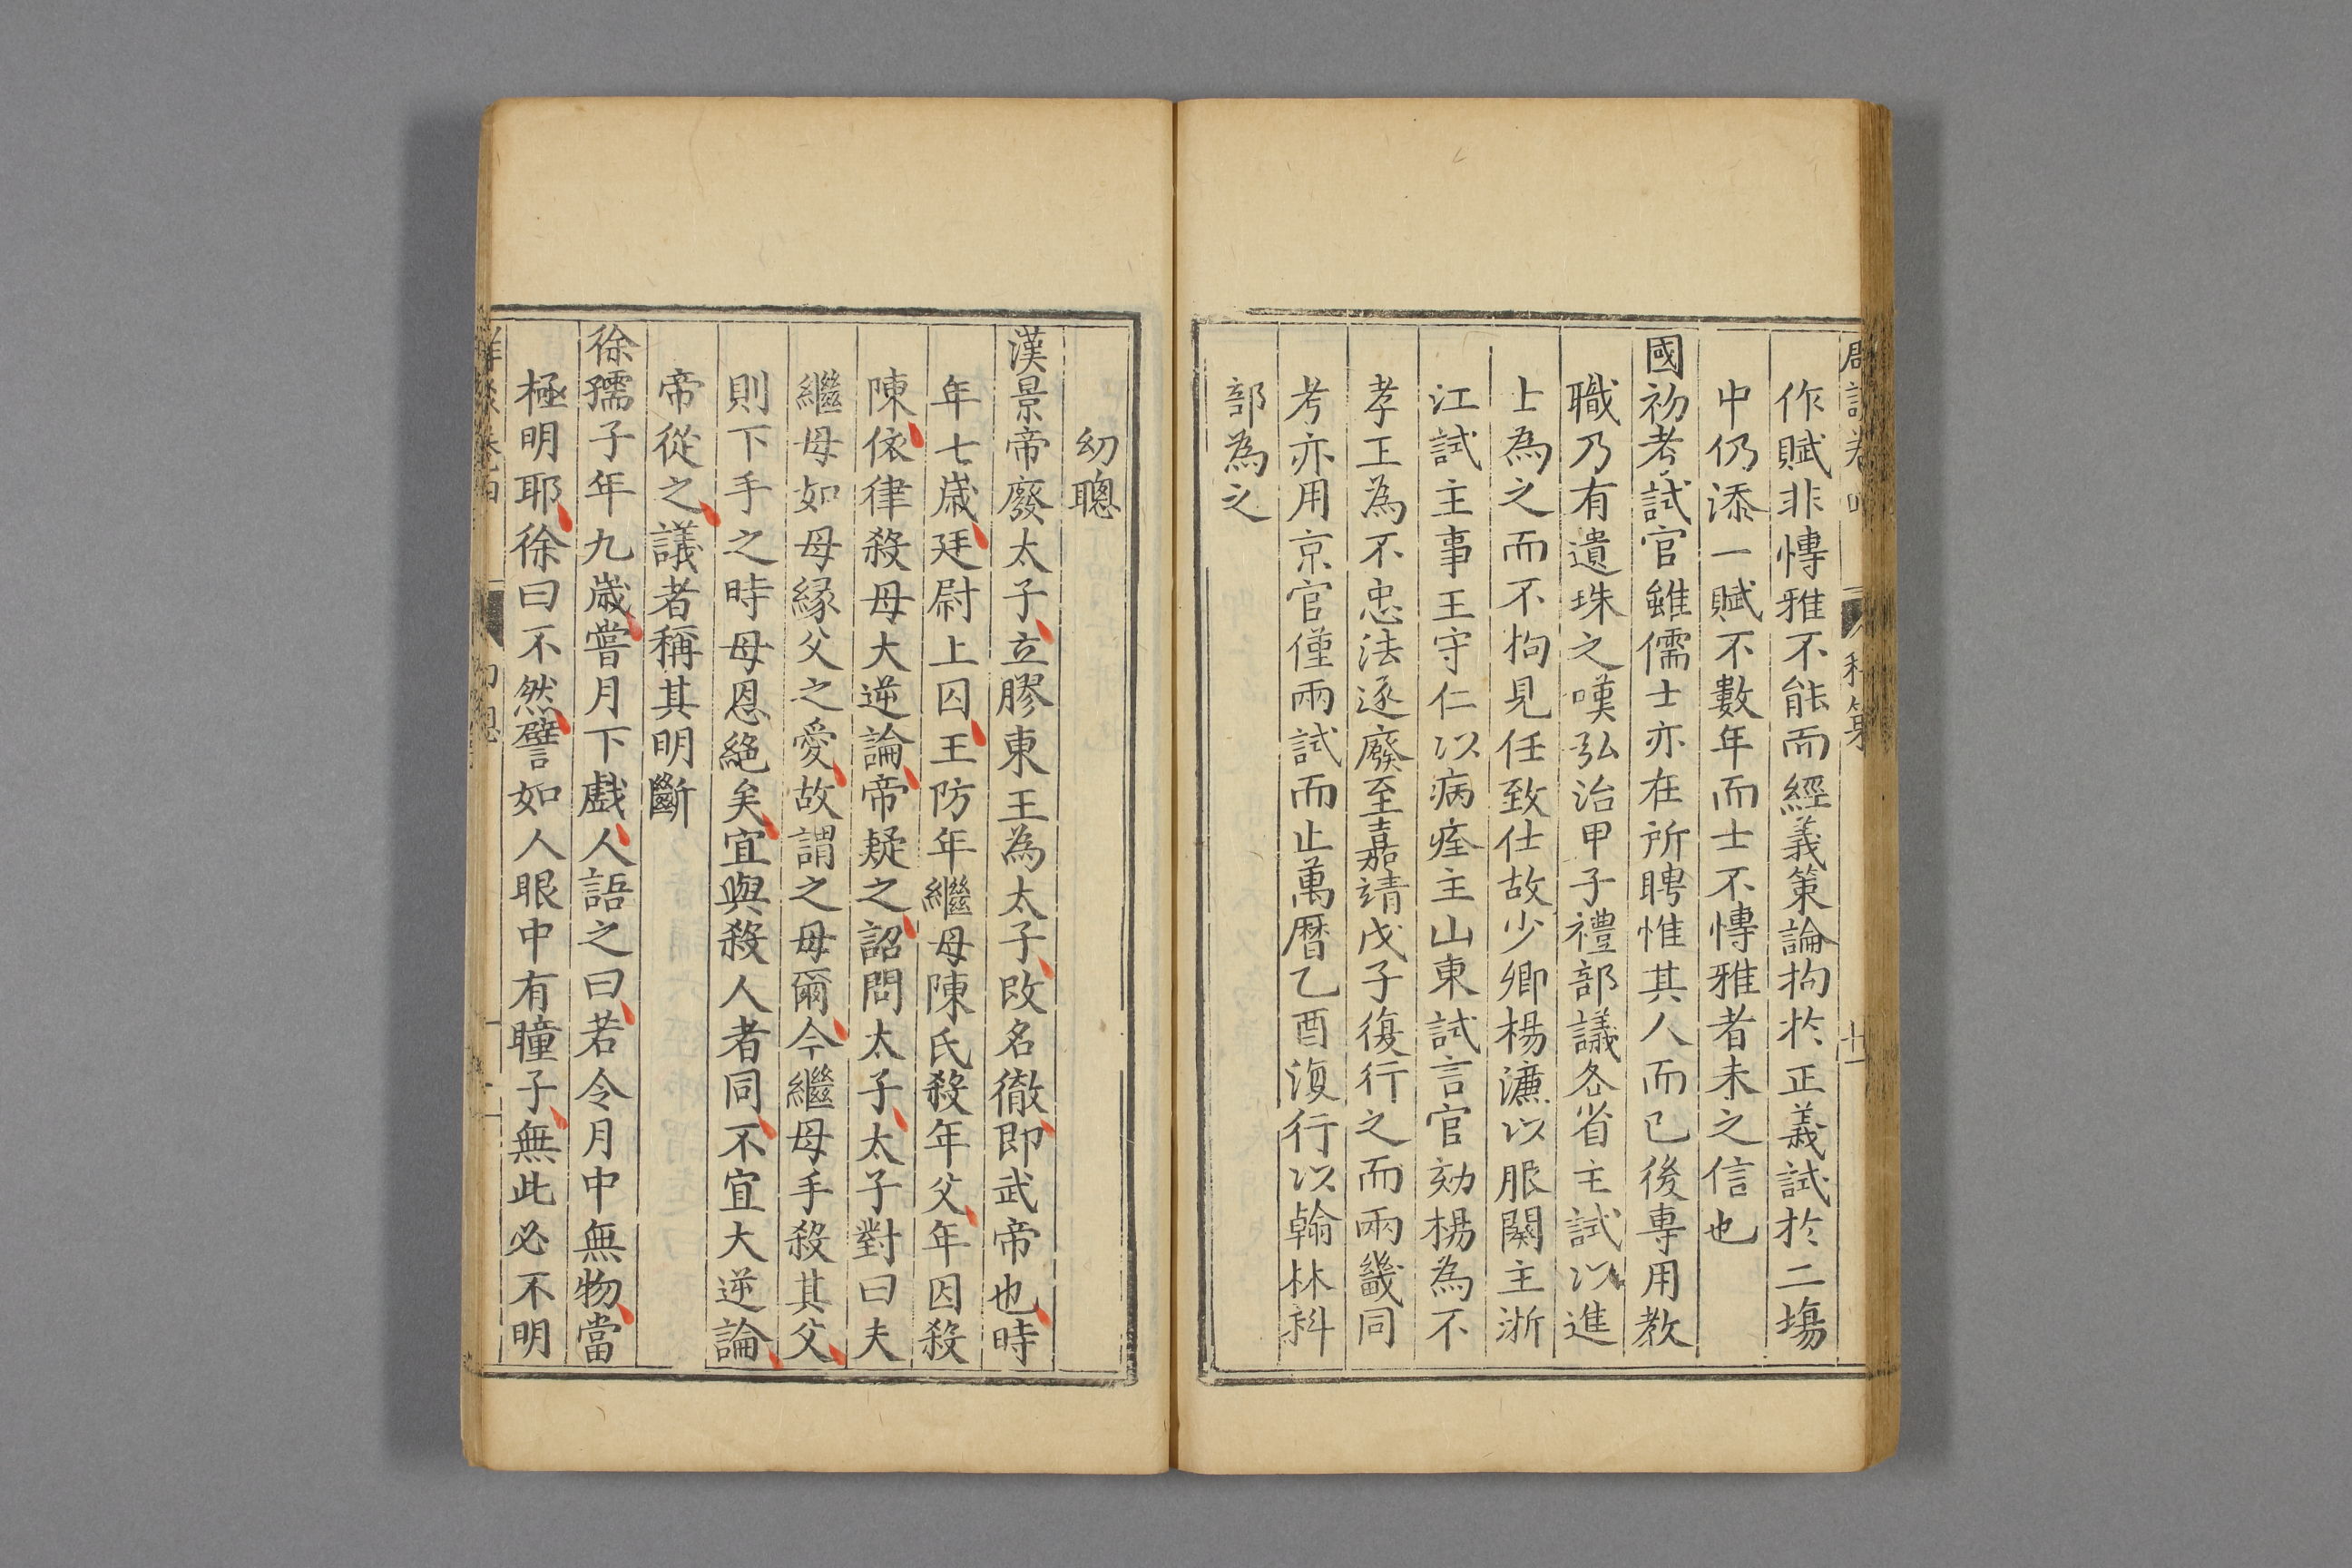 作賦非愽雅不能而經義策論拘於正義試於二塲
中仍添一賦不數年而士不愽雅者未之信也
國初考試官雖儒士亦在所聘惟其人而已後專用教
職乃有遺珠之嘆弘治甲子禮部議各省主試以進
士為之而不拘見任致仕故少卿楊濂以服闋主浙
江試主事王守仁以病痊主山東試言官劾楊為不
孝王為不忠法遂廢至嘉靖戊子復行之而兩畿同
考亦用京官僅兩試而止萬曆乙酉復行以翰林科
部為之
幼聰
漢景帝廢太子立膠東王為太子改名徹即武帝也時
年七歲廷尉上囚王防年繼母陳氏殺年父年因殺
陳依律殺母大逆論帝疑之詔問太子太子對曰夫
繼母如母緣父之愛故謂之母爾今繼母手殺其父
則下手之時母恩絕矣宜與殺人者同不宜大逆論
帝從之議者稱其明斷
徐孺子年九歲嘗月下戲人語之曰若令月中無物當
極明耶徐曰不然譬如人眼中有瞳子無此必不明